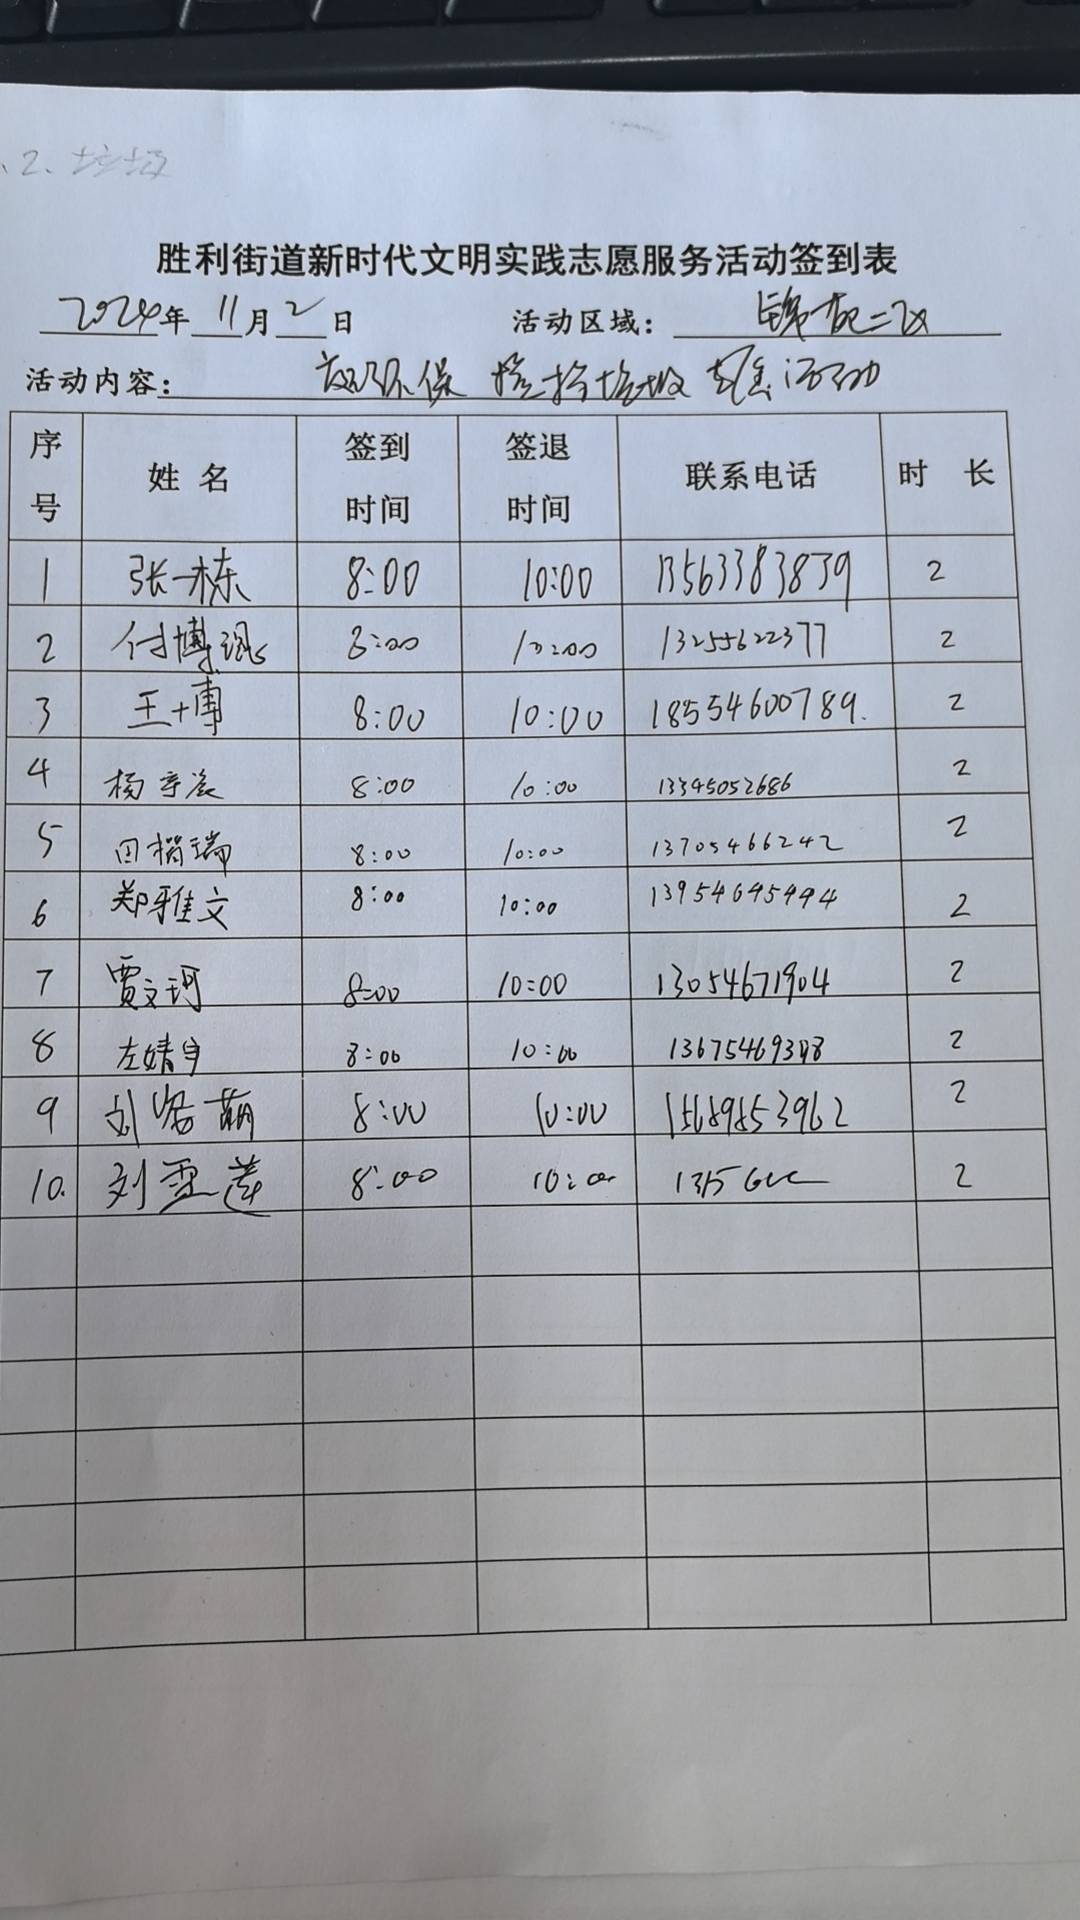 2、垃圾
胜利街道新时代文明实践志愿服务活动签到表
2024年 11月 2日 活动区域: 锦苑二区
活动内容: 环保 捡拾垃圾 志愿活动
序号 姓名 签到时间 签退时间 联系电话 时长
1 张一栋 8:00 10:00 13563383839 2
2 付博 8:00 10:00 13255622377 2
3 王博 8:00 10:00 18554600789. 2
4 杨 8:00 10:00 13345052686 2
5 田楷瑞 8:00 10:00 13705466242 2
6 郑雅文 8:00 10:00 13954695994 2
7 贾文珂 8:00 10:00 13054671904 2
8 左婧宇 8:00 10:00 2
9 刘 萌 8:00 10:00 15689853962 2
10. 刘雪莲 8:00 10:00 2